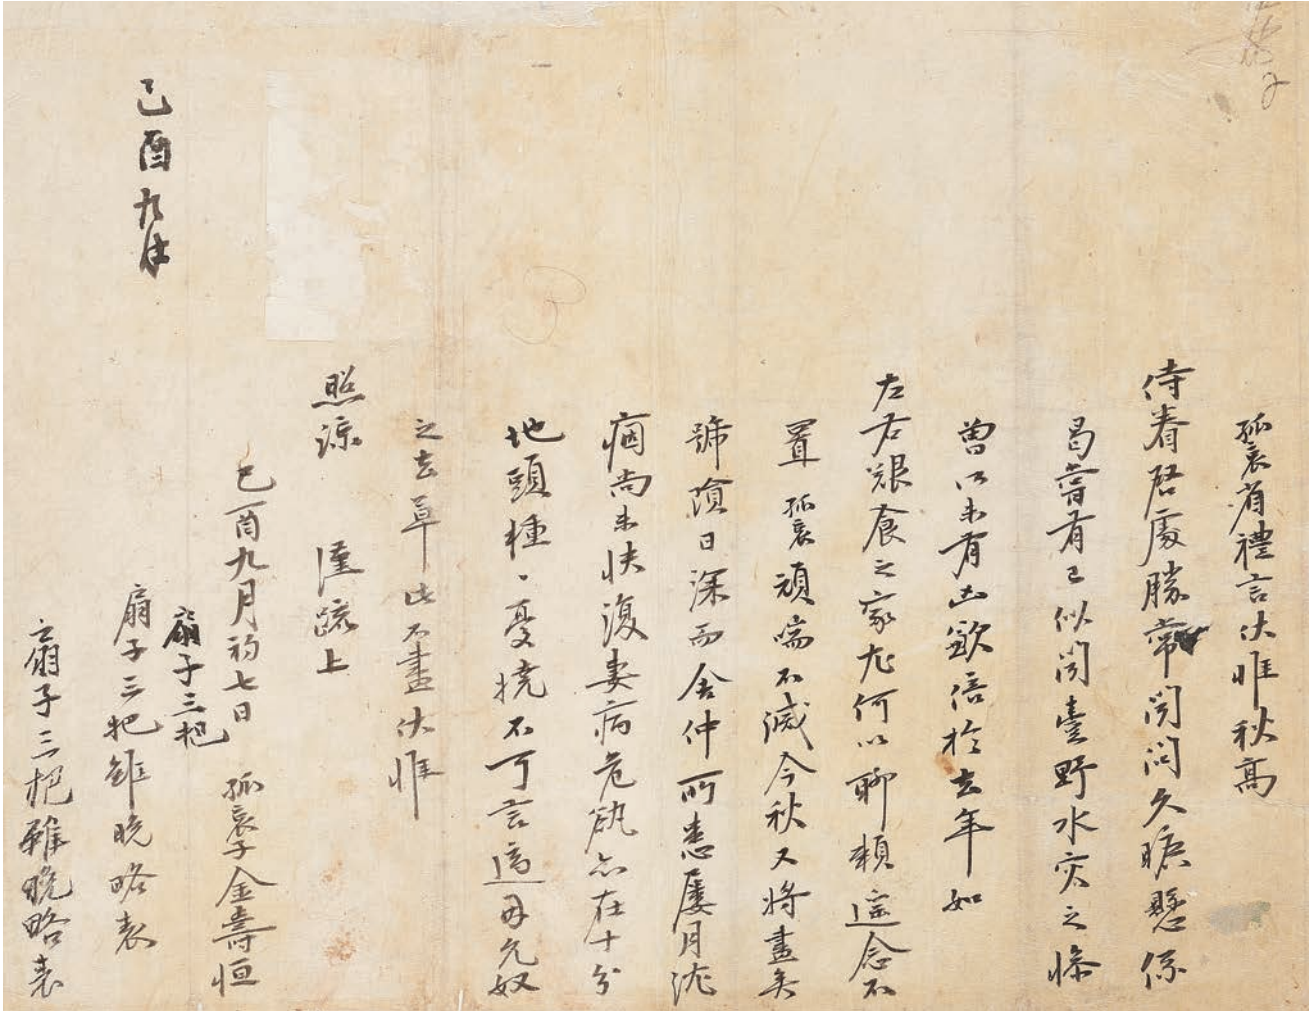 孤哀省禮言伏惟秋高
侍奉啓處勝常聞問久曠懸係
曷嘗有已似聞臺野水灾之慘
曾所未有凶歉倍於去年如
左右艱食之家尤何以聊賴遙念不
置孤哀頑喘不滅今秋又將盡矣
號隕日深而舍仲所患屢月沈
痼尚未快復妻病危㞃亦在十分
地頭種〻憂撓不可言適因允奴
之去草此不盡伏惟
照諒 謹疏上
己酉九月初七日 孤哀子金壽恒
扇子三把
扇子三把雖晚略表
扇子三把雖晚略表
己酉九月